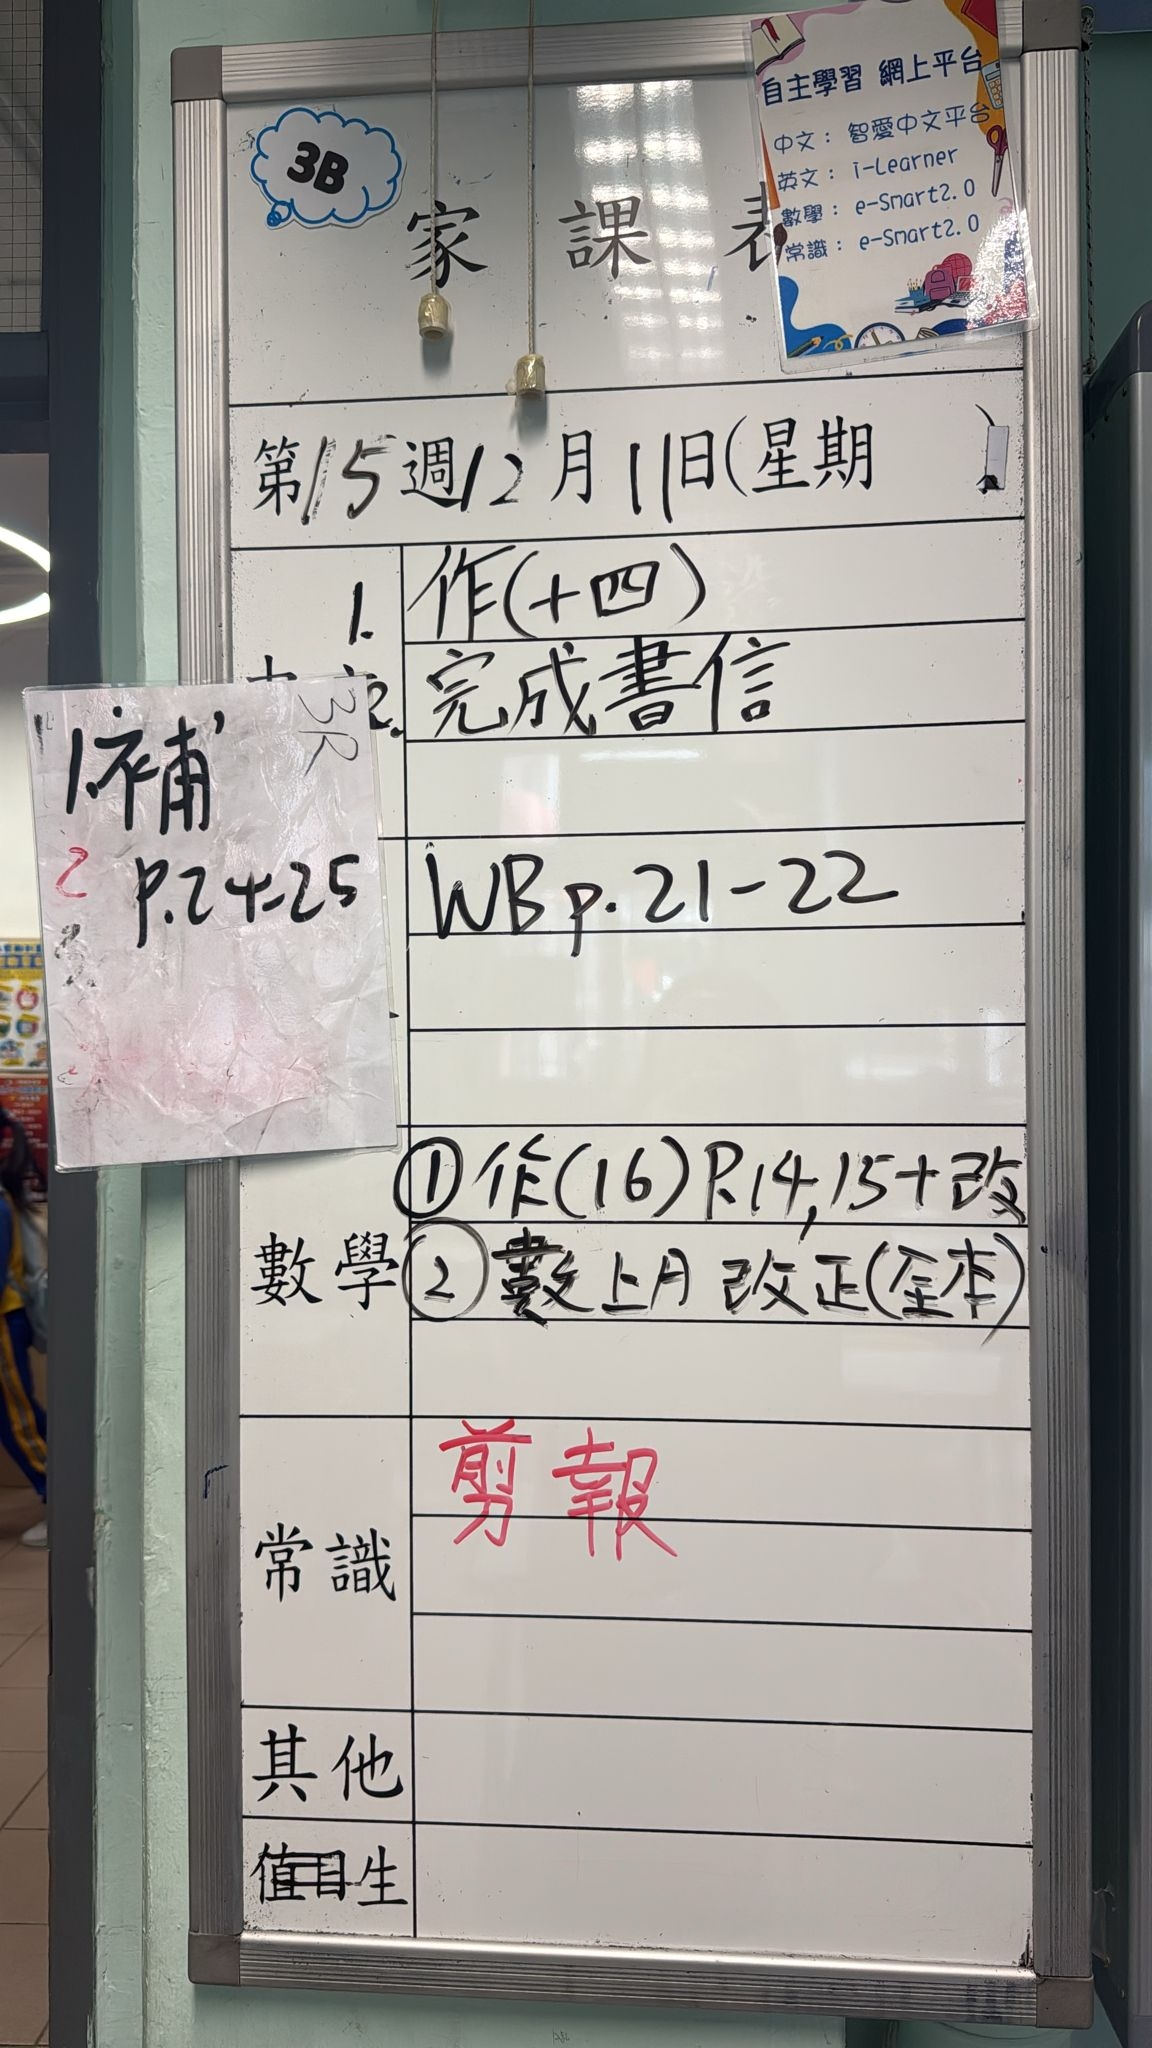 3B
家課表
自主學習 網上平台
中文： 智愛中文平台
英文： i-Learner
數學： e-Smart2.0
常識： e-Smart2.0
第15週12月11日(星期 )
1. 作(十四)
2. 完成書信
3R
1. 補
P.24-25
2
WB p.21-22
數學
① 作(16) P.14,15+改
② 數上月 改正(全本)
常識
剪報
其他
值日生